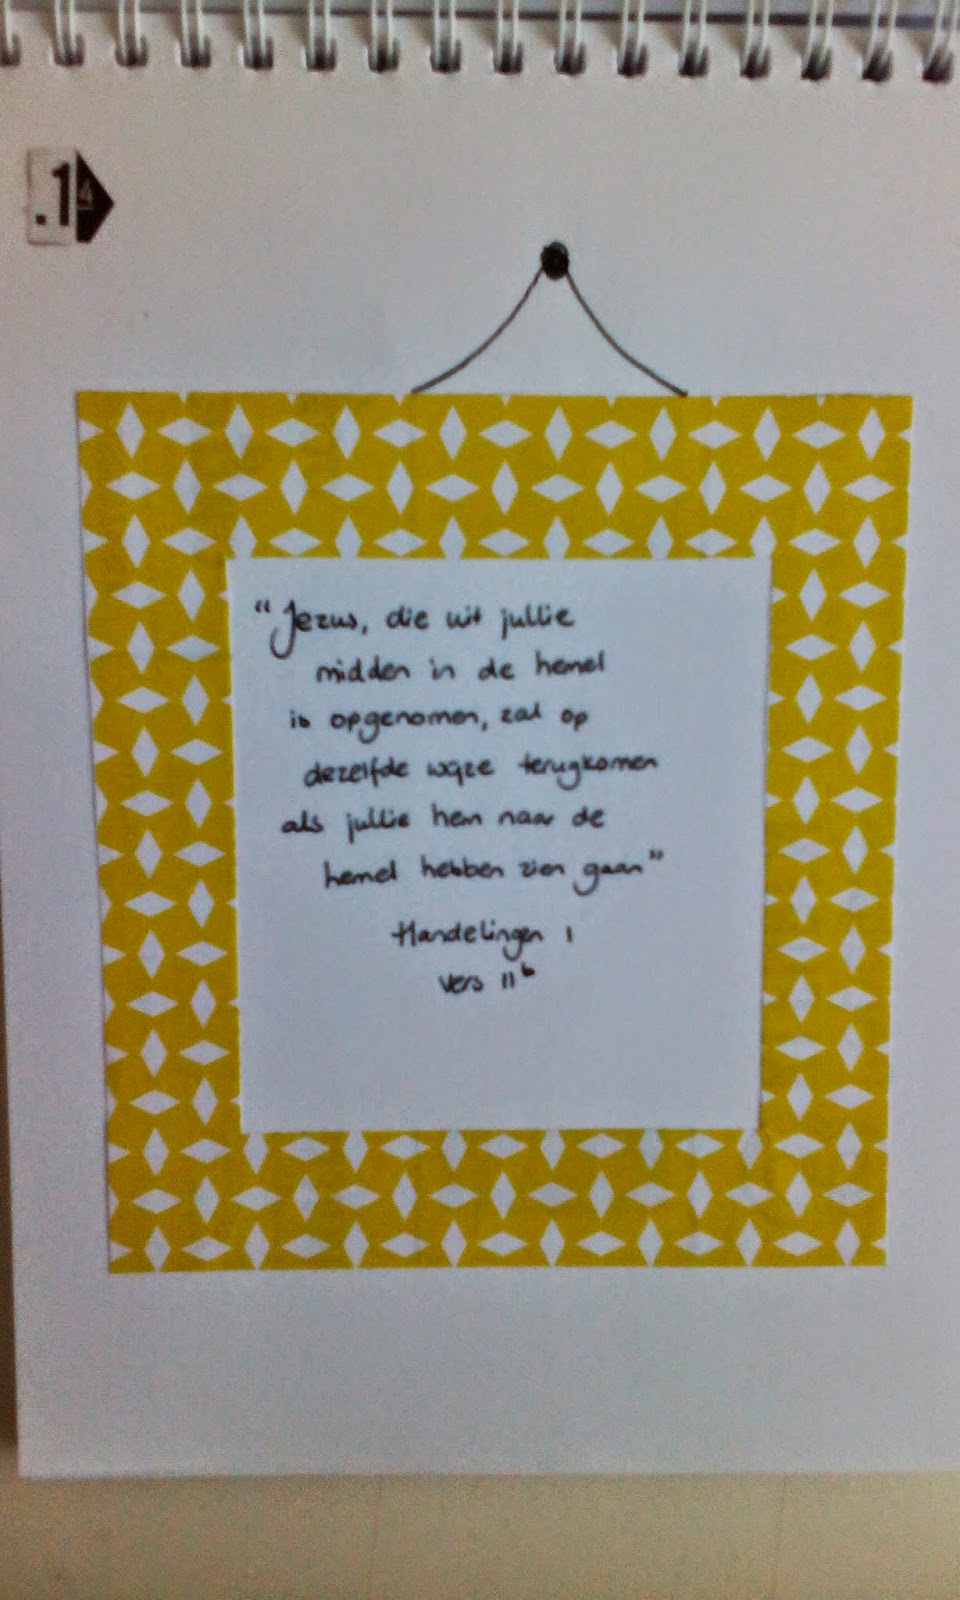 .14
"Jezus, die uit jullie
midden in de hemel
is opgenomen, zal op
dezelfde wijze terugkomen
als jullie hem naar de
hemel hebben zien gaan"
Handelingen 1
vers 11b